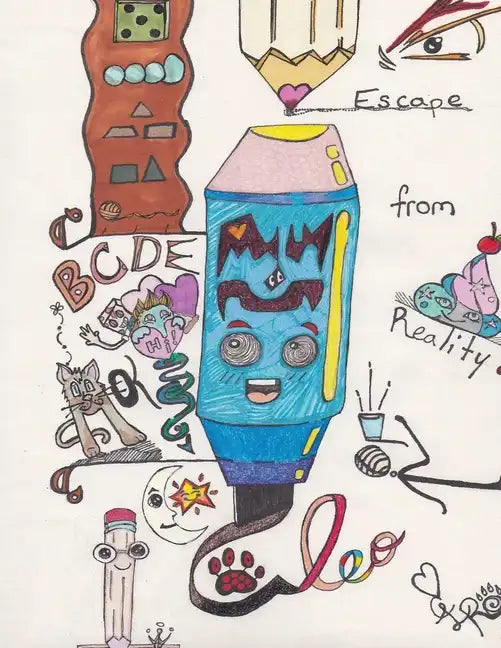 Escape
from
BCDE
Hi!
Reality
leo